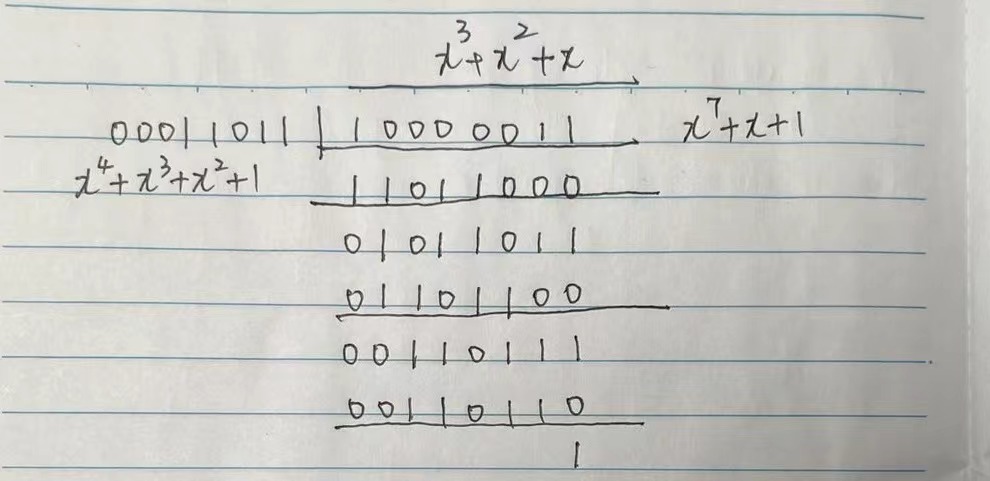 x³+x²+x
00011011 | 10000011 x⁷+x+1
x⁴+x³+x²+1 11011000
01011011
01101100
00110111
00110110
1